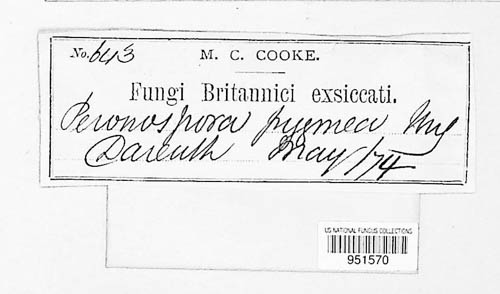 No. 643
M. C. COOKE.
Fungi Britannici exsiccati.
Peronospora pygmea Ung
Darenth May /74
US NATIONAL FUNGUS COLLECTIONS
951570